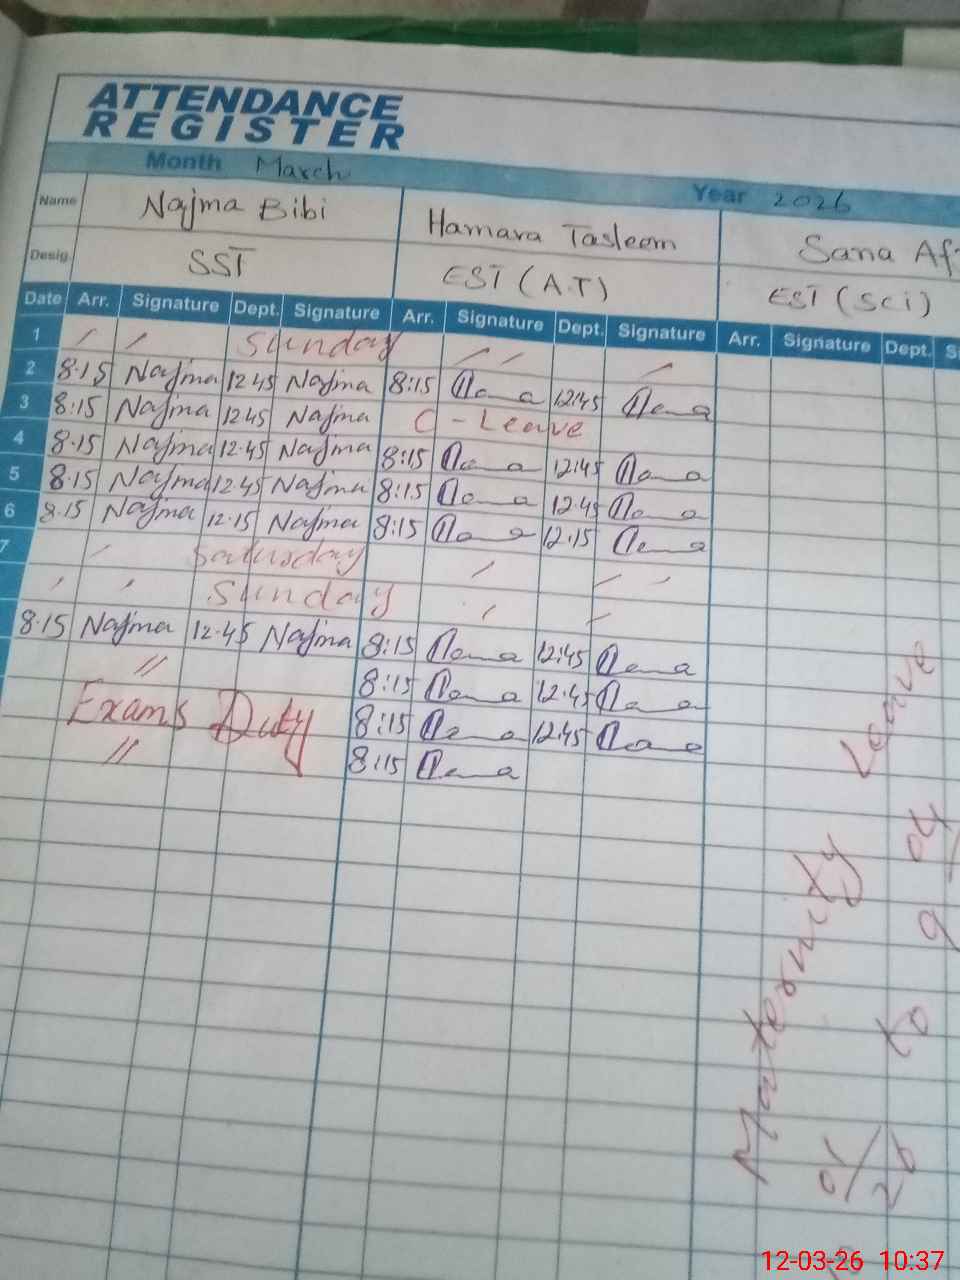 ATTENDANCE
REGISTER
Month March Year 2026
Name Najma Bibi Hamara Tasleem Sana Af
Desig. SST EST (A.T) EST (Sci)
Date Arr. Signature Dept. Signature Arr. Signature Dept. Signature Arr. Signature Dept. S
1 Sunday
2 8:15 Najma 12 45 Najma 8:15 12:45
3 8:15 Najma 12 45 Najma C - Leave
4 8:15 Najma 12.45 Najma 8:15 12:45
5 8:15 Najma 12.45 Najma 8:15 12:45
6 8.15 Najma 12.15 Najma 8:15 12:15
7 Saturday
Sunday
8.15 Najma 12.45 Najma 8:15 12:45
" 8:15 12:45
Exams Duty 8:15 12:45
" 8:15
Maternity Leave
to
12-03-26 10:37